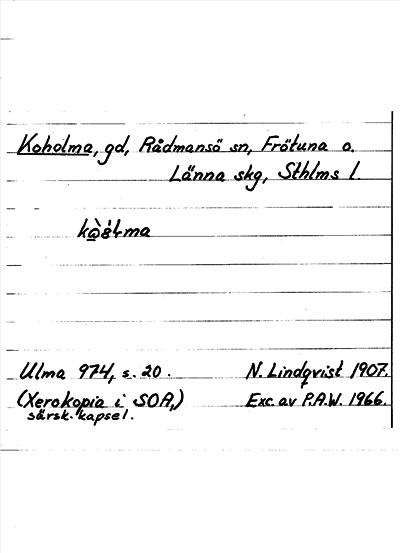 Koholma, gd, Rådmansö sn, Frötuna o.
Länna skg, Sthlms l.
Ulma 974, s. 20. N. Lindqvist 1907.
(Xerokopia i SOA,) Exc. av P.A.W. 1966.
särsk. kapsel.